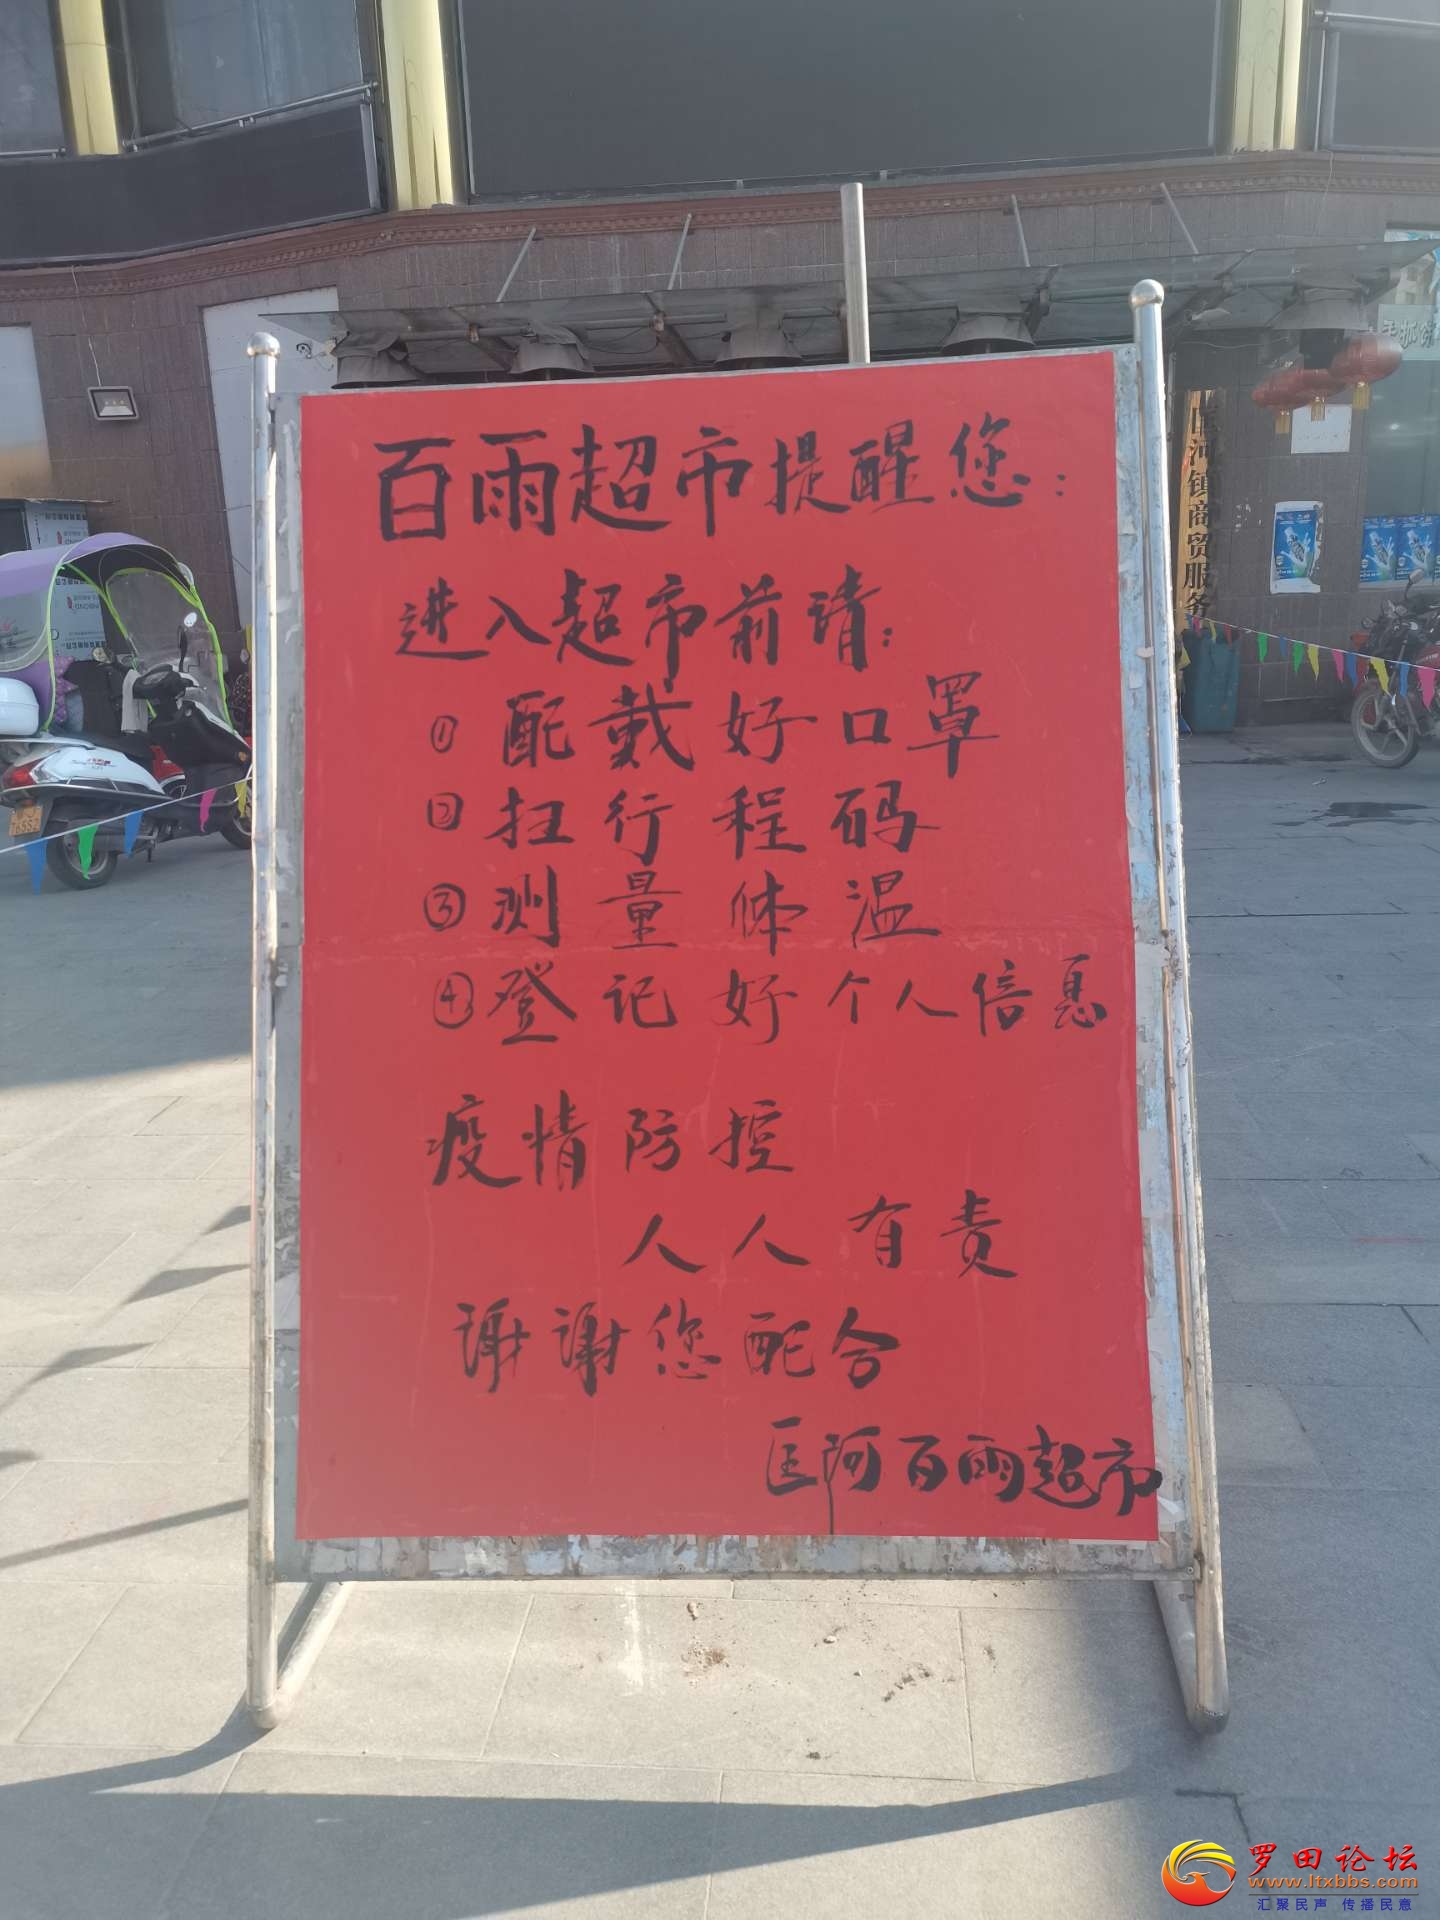 百雨超市提醒您：
进入超市前请：
① 配戴好口罩
② 扫行程码
③ 测量体温
④ 登记好个人信息
疫情防控
人人有责
谢谢您配合
匡河百雨超市
匡河镇商贸服务
手抓饼
罗田论坛
www.ltxbbs.com
汇聚民声 传播民意